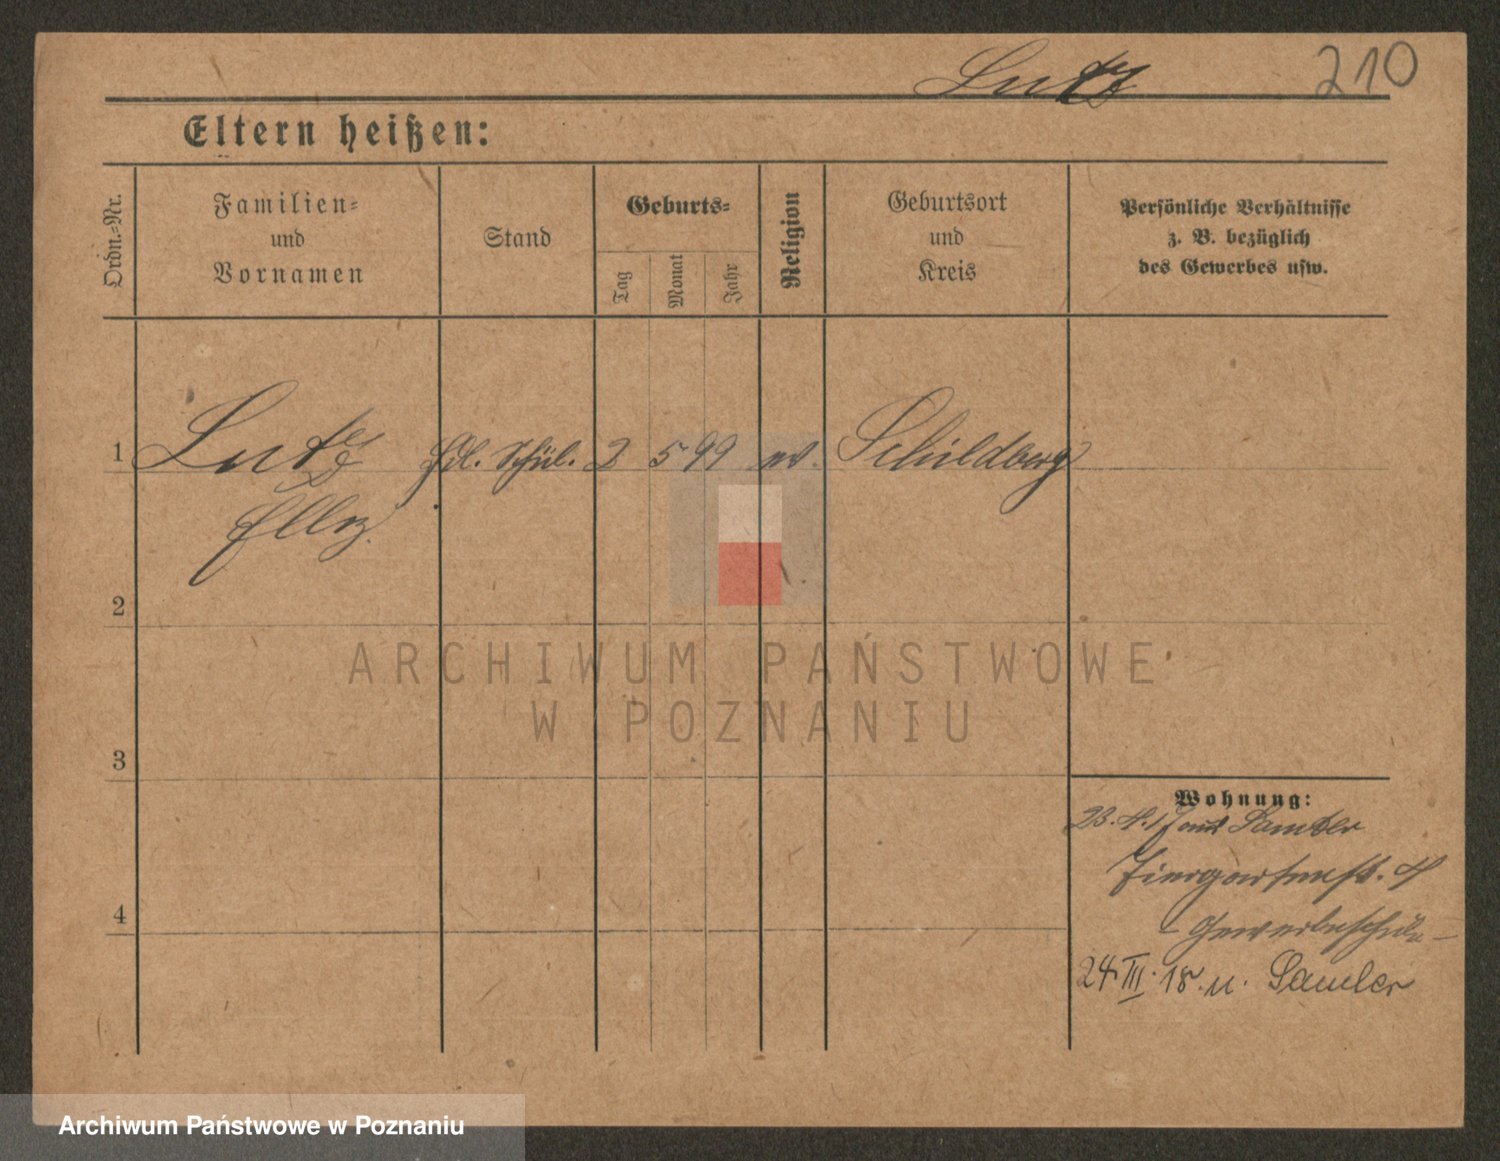 Lutz 210
Eltern heißen:
Ordn.-Nr.
Familien- und Vornamen
Stand
Geburts-
Tag
Monat
Jahr
Religion
Geburtsort und Kreis
Persönliche Verhältnisse
z. B. bezüglich
des Gewerbes usw.
1 Lutz Hdl. Schül. 2 5 99 ev. Schildberg
Elly
2
3
4
ARCHIWUM PAŃSTWOWE
W POZNANIU
Wohnung:
23. 4. 17 aus Samter
Tiergartenst. 4
- Gewerbeschule -
24. III. 18. n. Samter
Archiwum Państwowe w Poznaniu